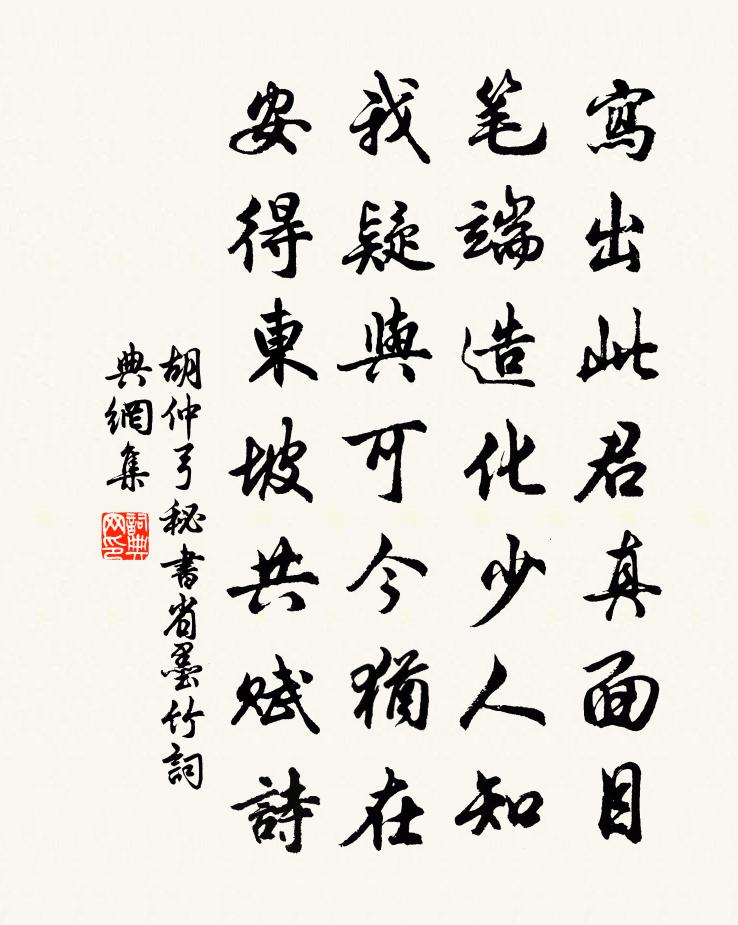 寫出此君真面目
笔端造化少人知
我疑與可今猶在
安得東坡共賦詩
胡仲弓秘書省墨竹詞
典網集
詞典
网印